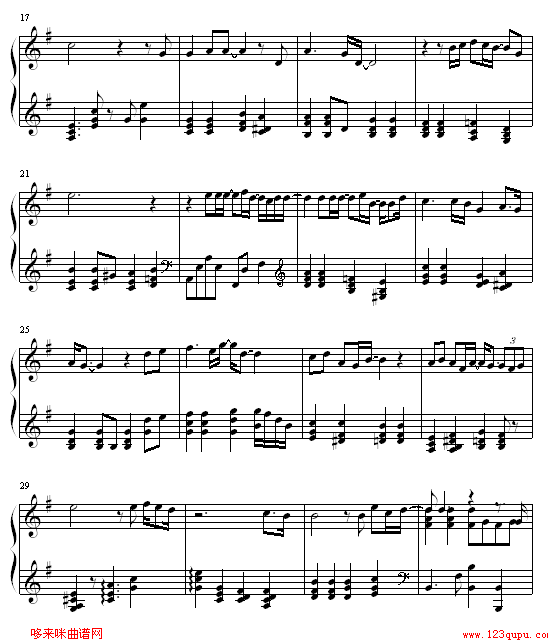 17
21
25
3
29
哆来咪曲谱网
www.123qupu.com